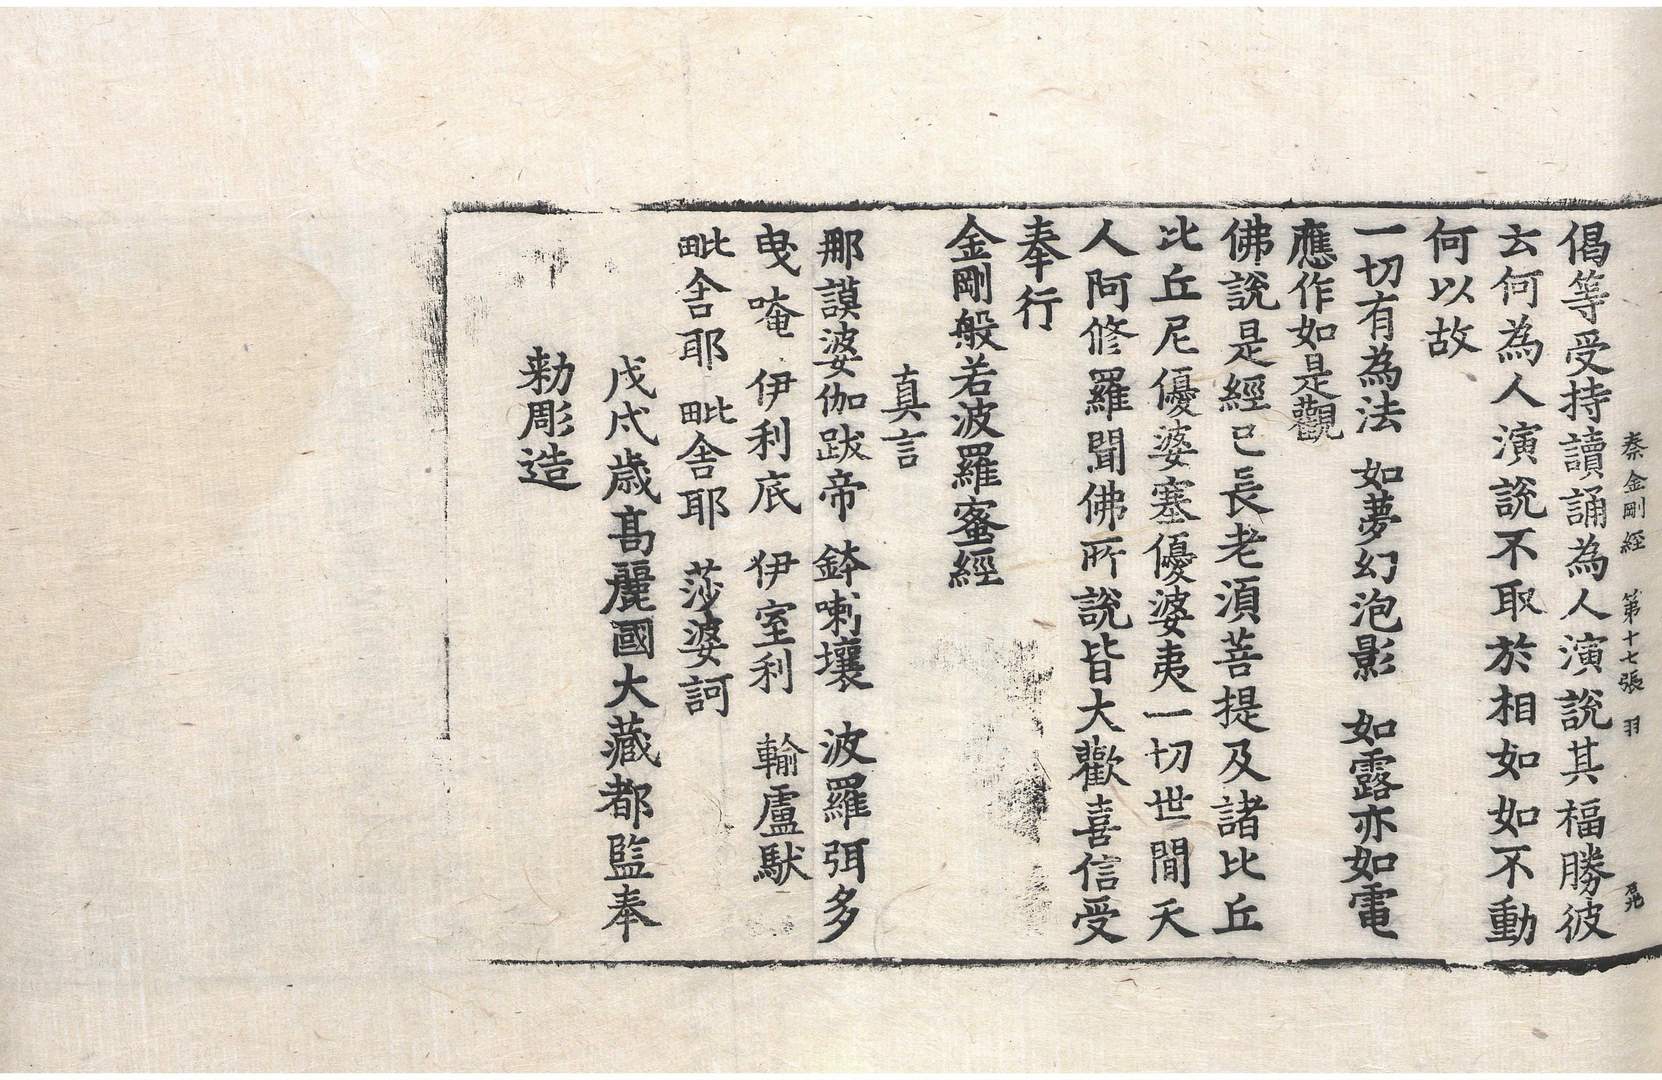 秦金剛經 第十七張 羽
偈等受持讀誦為人演說其福勝彼
云何為人演說不取於相如如不動
何以故
一切有為法 如夢幻泡影 如露亦如電
應作如是觀
佛說是經已長老湏菩提及諸比丘
比丘尼優婆塞優婆夷一切世閒天
人阿修羅聞佛所說皆大歡喜信受
奉行
金剛般若波羅蜜經
真言
那謨婆伽跋帝 鉢喇壤 波羅弭多
曳唵 伊利底 伊室利 輸盧馱
毗舍耶 毗舍耶 莎婆訶
戊戌歲髙麗國大藏都監奉
勑彫造